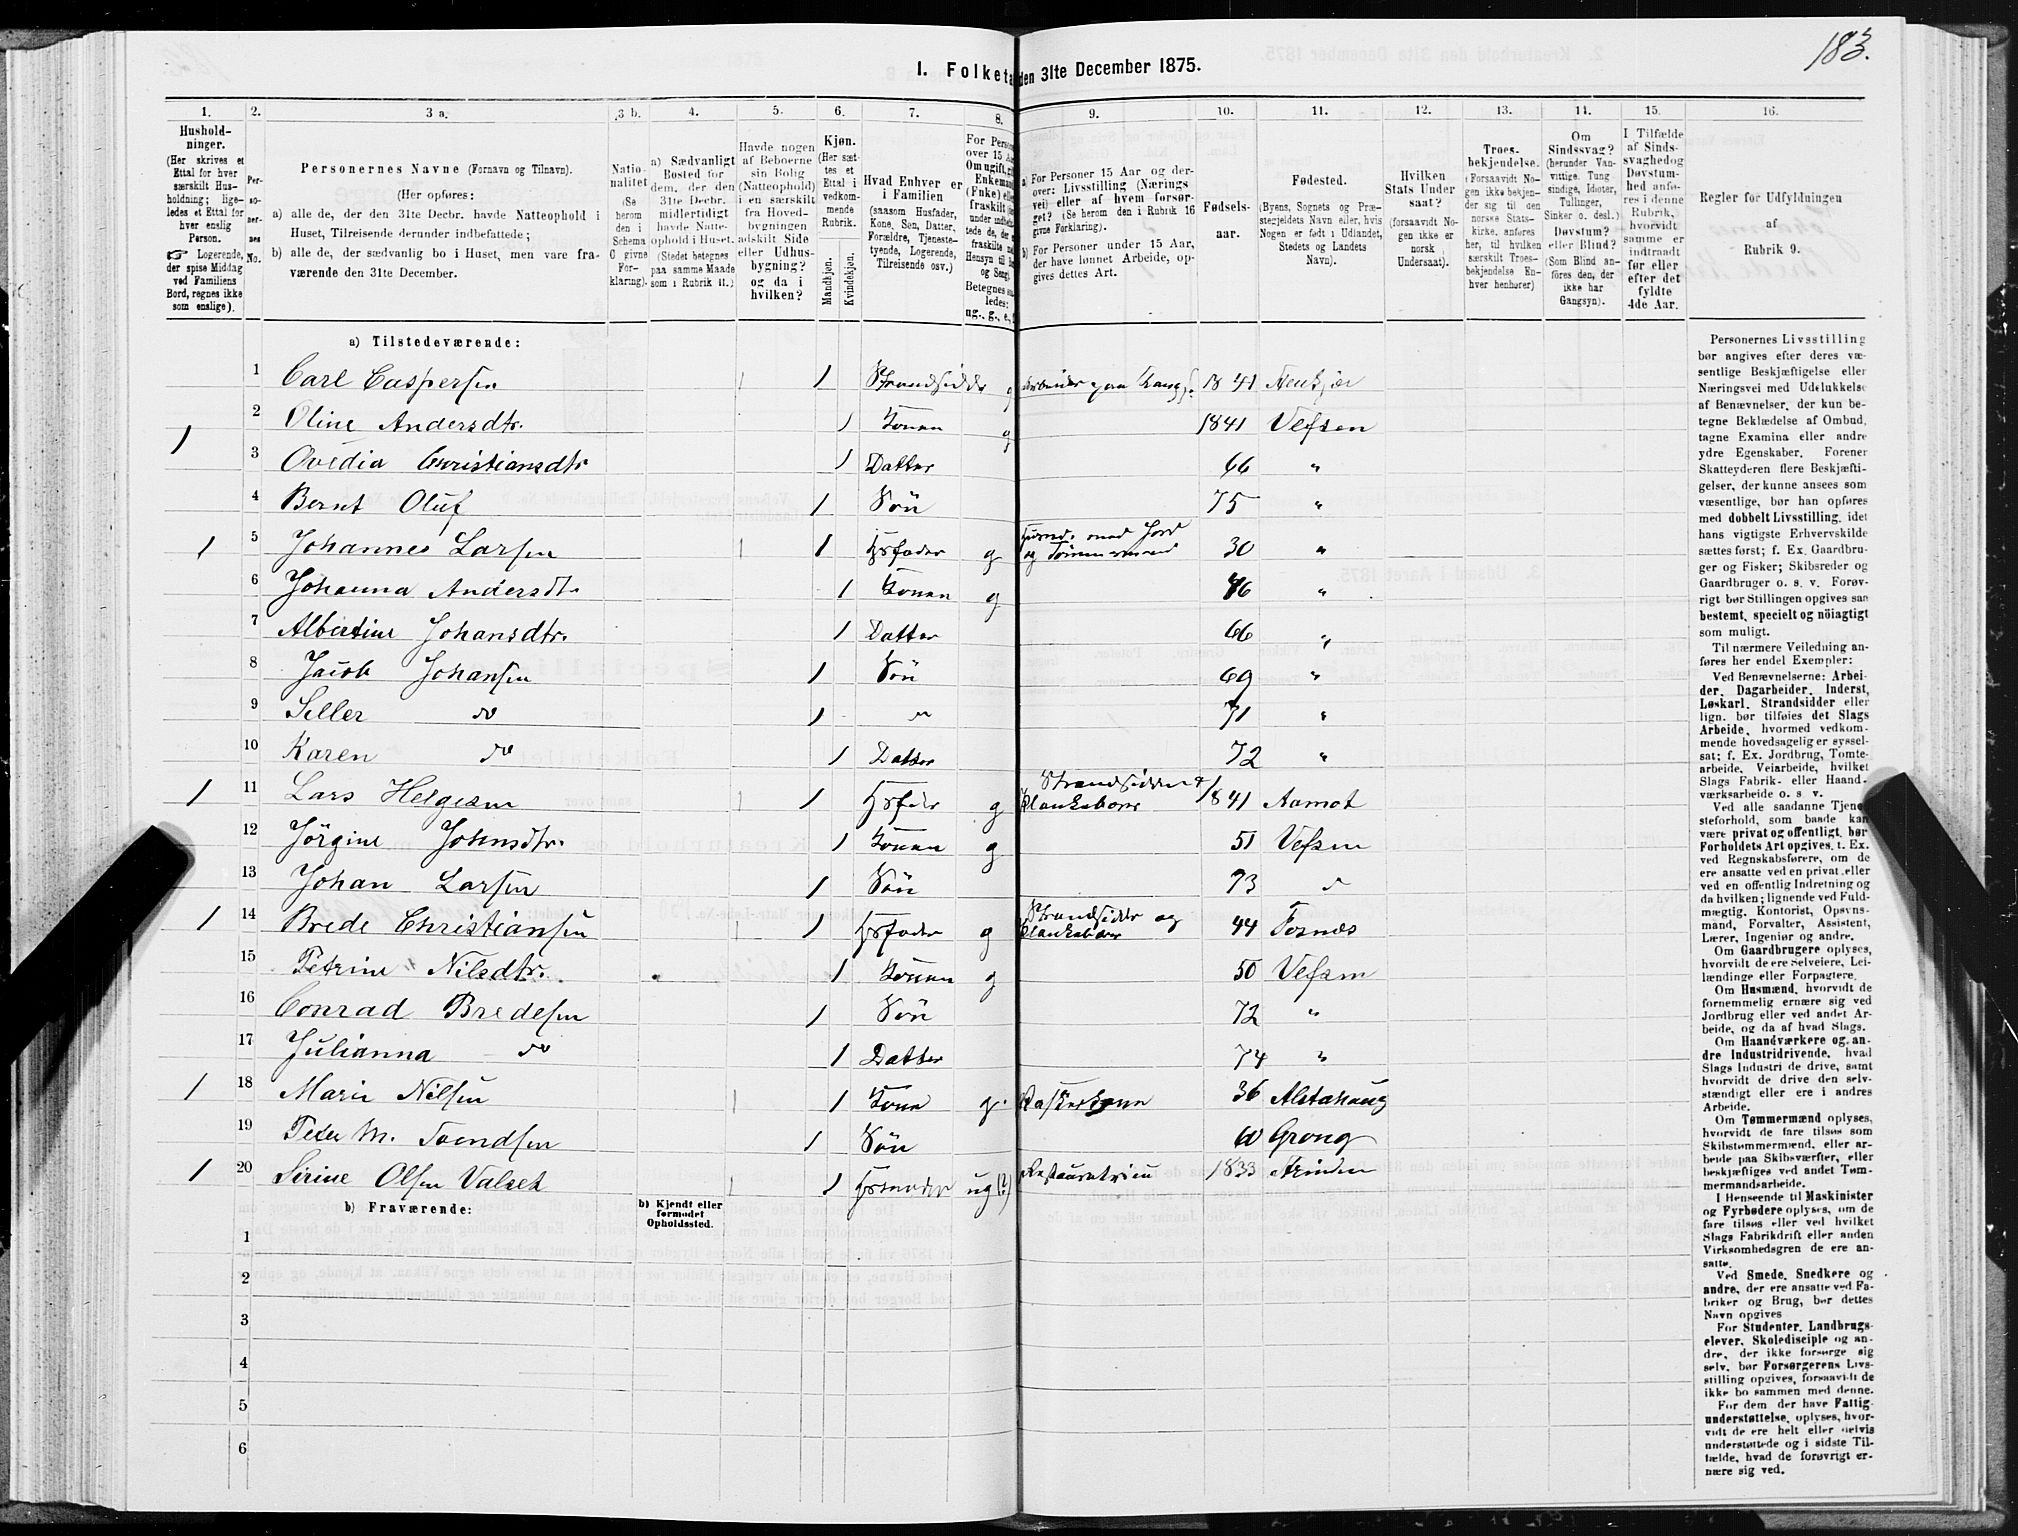 183.
I. Folketa den 31te December 1875.
1. 2. 3 a. 3 b. 4. 5. 6. 7. 8. 9. 10. 11. 12. 13. 14. 15. 16.
Hushold-
ninger.
(Her skrives et
Ettal for hver
særskilt Hus-
holdning; lige-
ledes et Ettal for
hver enslig
Person.
☞ Logerende,
der spise Middag
ved Familiens
Bord, regnes ikke
som enslige).
Per-
so-
ner-
nes
No.
Personernes Navne (Fornavn og Tilnavn).
(Her opføres:
a) alle de, der den 31te Decbr. havde Natteophold i
Huset, Tilreisende derunder indbefattede;
b) alle de, der sædvanlig bo i Huset, men vare fra-
værende den 31te December.
Natio-
nalitet
(Se
herom
den i
Schema
O givne
For-
klaring).
a) Sædvanligt
Bosted for
dem, der den
31te Decbr.
midlertidigt
havde Natte-
ophold i Huset.
(Stedet betegnes
paa samme Maade
som i Rubrik 11.)
Havde nogen
af Beboerne
sin Bolig
(Natteophold)
i en særskilt
fra Hoved-
bygningen
adskilt Side
eller Udhus-
bygning?
og da i
hvilken?
Kjøn.
(Her sæt-
tes et
Ettal i
vedkom-
mende
Rubrik.
Mandkjøn.
Kvindekjøn.
Hvad Enhver er
i Familien
(saasom Husfader,
Kone, Søn, Datter,
Forældre, Tjeneste-
tyende, Logerende,
Tilreisende osv.)
For Person
over 15 Aa
Om ugift, gi
Enkeman
(Fnke) elle
fraskilt (s
under indbe
tede de, de
fraskilte m
Hensyn til B
og Seng)
Betegnes s
ledes:
ug., g., e, f
a) For Personer 15 Aar og der-
over: Livsstilling (Nærings
vei) eller af hvem forsør-
get? (Se herom den i Rubrik 16
givne Forklaring).
b) For Personer under 15 Aar,
der have lønnet Arbeide, op-
gives dettes Art.
Fødsels-
aar.
Fødested.
(Byens, Sognets og Præ-
stegjeldets Navn eller, hvis
Nogen er født i Udlandet,
Stedets og Landets
Navn).
Hvilken
Stats Under
saat?
(forsaavidt No-
gen ikke er
norsk
Undersaat).
Troes-
bekjendelse.
(Forsaavidt No-
gen ikke bekjen-
der sig til den
norske Stats-
kirke, anføres
her, til hvilken
særskilt Troes-
bekjendelse En-
hver henhører)
Om
Sindssvag?
(herunder Van-
vittige, Tung
sindige, Idioter,
Tullinger,
Sinker o. desl.)
Døvstum?
eller Blind?
(Som Blind an-
føres den, der
ikke har
Gangsyn).
I Tilfælde
af Sinds-
svaghed og
Døvstum-
hed anfø-
res i denne
Rubrik,
hvorvidt
samme er
indtraadt
før eller
efter det
fyldte
4de Aar.
Regler for Udfyldningen
af
Rubrik 9.
a) Tilstedeværende:
1 Carl Caspersen 1 Strandsidder g 1841
2 Oline Andersdtr. 1 Konen g 1841 Vefsen
1
3 Ovedia Christiansdtr 1 Datter 66 "
4 Bernt Oluf 1 Søn 75 "
1 5 Johannes Larsen 1 Hsfader g Husmd. med Jord
og Tømmermand 30 "
6 Johanna Andersdt. 1 Konen g 46 "
7 Albertine Johansdtr. 1 Datter 66 "
8 Jacob Johansen 1 Søn 69 "
9 Seller do 1 " 71 "
10 Karen do 1 Datter 72 "
1 11 Lars Helgesen 1 Hsfader g Strandsidder &
Plankebærer 1841 Aamot
12 Jörgine Johnsdtr. 1 Konen g 51 Vefsen
13 Johan Larsen 1 Søn 73 "
1 14 Brede Christiansen 1 Hsfader g Strandsidder og
Plankebærer 44 Fosnæs
15 Petrine Nilsdtr. 1 Konen g 50 Vefsen
16 Conrad Bredesen 1 Søn 72 "
17 Julianna do 1 Datter 74 "
1 18 Marie Nilsen 1 Kone g. 36 Alstahaug
19 Peter M. Svendsen 1 Søn 60 Grong
1 20 Sirine Olsen Valset 1 Hsmoder ug (?) Restauratricen 1833 Strinden
b) Fraværende:
b) Kjendt eller
formodet
Opholdssted.
1
2
3
4
5
6
Personernes Livsstilling
bør angives efter deres væ-
sentlige Beskjæftigelse eller
Næringsvei med Udelukkelse
af Benævnelser, der kun be-
tegne Beklædelse af Ombud,
tagne Examina eller andre
ydre Egenskaber. Forener
Skatteyderen flere Beskjæfti-
gelser, der kunne ansees som
væsentlige, bør han opføres
med dobbelt Livsstilling, idet
hans vigtigste Erhvervskilde
sættes først; f. Ex. Gaardbru-
ger og Fisker; Skibsreder og
Gaardbruger o. s. v. Forøv-
rigt bør Stillingen opgives saa
bestemt, specielt og nöiagtigt
som muligt.
Til nærmere Veiledning an-
føres her endel Exempler:
Ved Benævnelserne: Arbei-
der, Dagarbeider, Inderst,
Løskarl, Strandsidder eller
lign. bør tilføies det Slags
Arbeide, hvormed vedkom-
mende hovedsagelig er syssel-
sat; f. Ex. Jordbrug, Tomte-
arbeide, Veiarbeide, hvilket
Slags Fabrik- eller Haand-
værksarbeide o. s. v.
Ved alle saadanne Tjene-
steforhold, som baade kan
være privat og offentligt, bør
Forholdets Art opgives, t. Ex.
ved Regnskabsførere, om de
ere ansatte ved en privat eller
ved en offentlig Indretning og
da hvilken; lignende ved Fuld-
mægtig, Kontorist, Opsyns-
mand, Forvalter, Assistent,
Lærer, Ingeniør og andre.
Om Gaardbrugere oplyses,
hvorvidt de ere Selveiere, Lei-
lændinge eller Forpagtere.
Om Husmænd, hvorvidt de
fornemmelig ernære sig ved
Jordbrug eller ved andet Ar-
beide, og da af hvad Slags.
Om Haandværkere og an-
dre Industridrivende, hvad
Slags Industri de drive, samt
hvorvidt de drive den selv-
stændigt eller ere i andres
Arbeide.
Om Tømmermænd oplyses,
hvorvidt de fare tilsøs som
Skibstømmermænd, eller ar-
beide paa Skibsværfter, eller
beskjæftiges ved andet Tøm-
mermandsarbeide.
I Henseende til Maskinister
og Fyrbødere oplyses, om de
fare tilsøs eller ved hvilket
Slags Fabrikdrift eller anden
Virksomhedsgren de ere an-
satte.
Ved Smede, Snedkere og
andre, der ere ansatte ved Fa-
briker og Brug, bør dettes
Navn opgives
For Studenter, Landbrugs-
elever, Skoledisciple og an-
dre, der ikke forsørge sig
selv, bør Forsørgerens Livs-
stilling opgives, forsaavidt de
ikke bo sammen med denne.
For dem, der have Fattig-
understøttelse, oplyses, hvor-
vidt de ere helt eller delvis
understøttede og i sidste Til-
fælde, hvad de forøvrigt er-
nære sig ved.